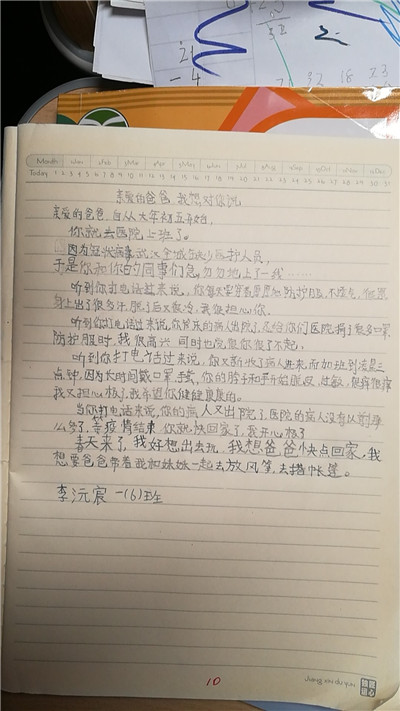 21
-4
32 18 23
Month 1/Jan 2/Feb 3/Mar 4/Apr 5/May 6/Jun 7/Jul 8/Aug 9/Sep 10/Oct 11/Nov 12/Dec
Today 1 2 3 4 5 6 7 8 9 10 11 12 13 14 15 16 17 18 19 20 21 22 23 24 25 26 27 28 29 30 31
亲爱的爸爸,我想对你说
亲爱的爸爸,自从大年初五开始,
你就去医院上班了。
因为冠状病毒,武汉全城在缺少医护人员,
于是你和你的同事们急匆匆地上了一线……
听到你打电话过来说,你每天要穿着厚厚的防护服,不透气,
身上出了很多汗,脱了后又很冷,我很担心你。
听到你打电话过来说,你管床的病人出院了,还给你们医院捐了很多口罩
防护服时,我很高兴,同时也觉得你很了不起。
听到你打电话过来说,你又新收了病人进来,而加班到凌晨三
点钟,因为长时间戴口罩手套,你的脖子和手开始脱皮、过敏,很痒很痛
我又担心极了,我希望你健健康康的。
当你打电话来说,你的病人又出院了,医院的病人没有以前那
么多了,等疫情结束,你就快回家了,我开心极了
春天来了,我好想出去玩,我想爸爸快点回家,我
想要爸爸带着我和妹妹一起去放风筝,去搭帐篷。
李沅宸 一(6)班
10